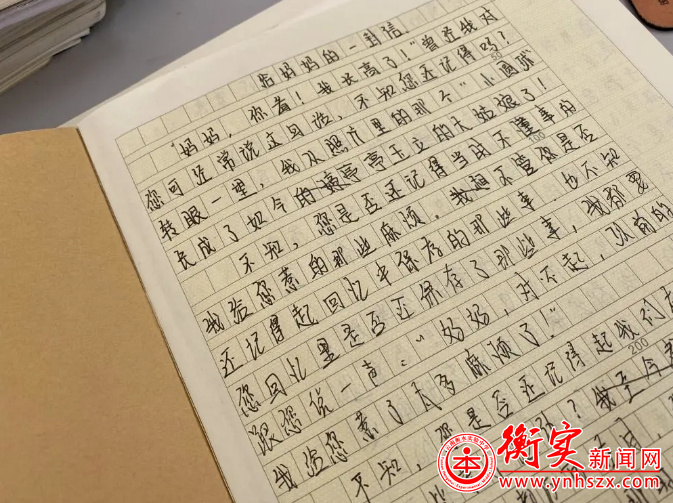 给妈妈的一封信
"妈妈，你看！我长高了！"曾近我对
您可近常说这句话，不知您还记得吗？
转眼一望，我从照片里的那个"小圆球
长成了如今的亭亭玉立的大姑娘了！
不知，您是否还记得当时不懂事的
我给您惹的那些麻烦，不管您是否
还记得起回忆中保存的那些事，也不知
您回忆里是否还保存了那些事，我都要
跟您说一声："妈妈，对不起，以前的
我给您惹了太多麻烦了！"
不知，您是否还记得起我们
200
衡实新闻网
www.ynhszx.com